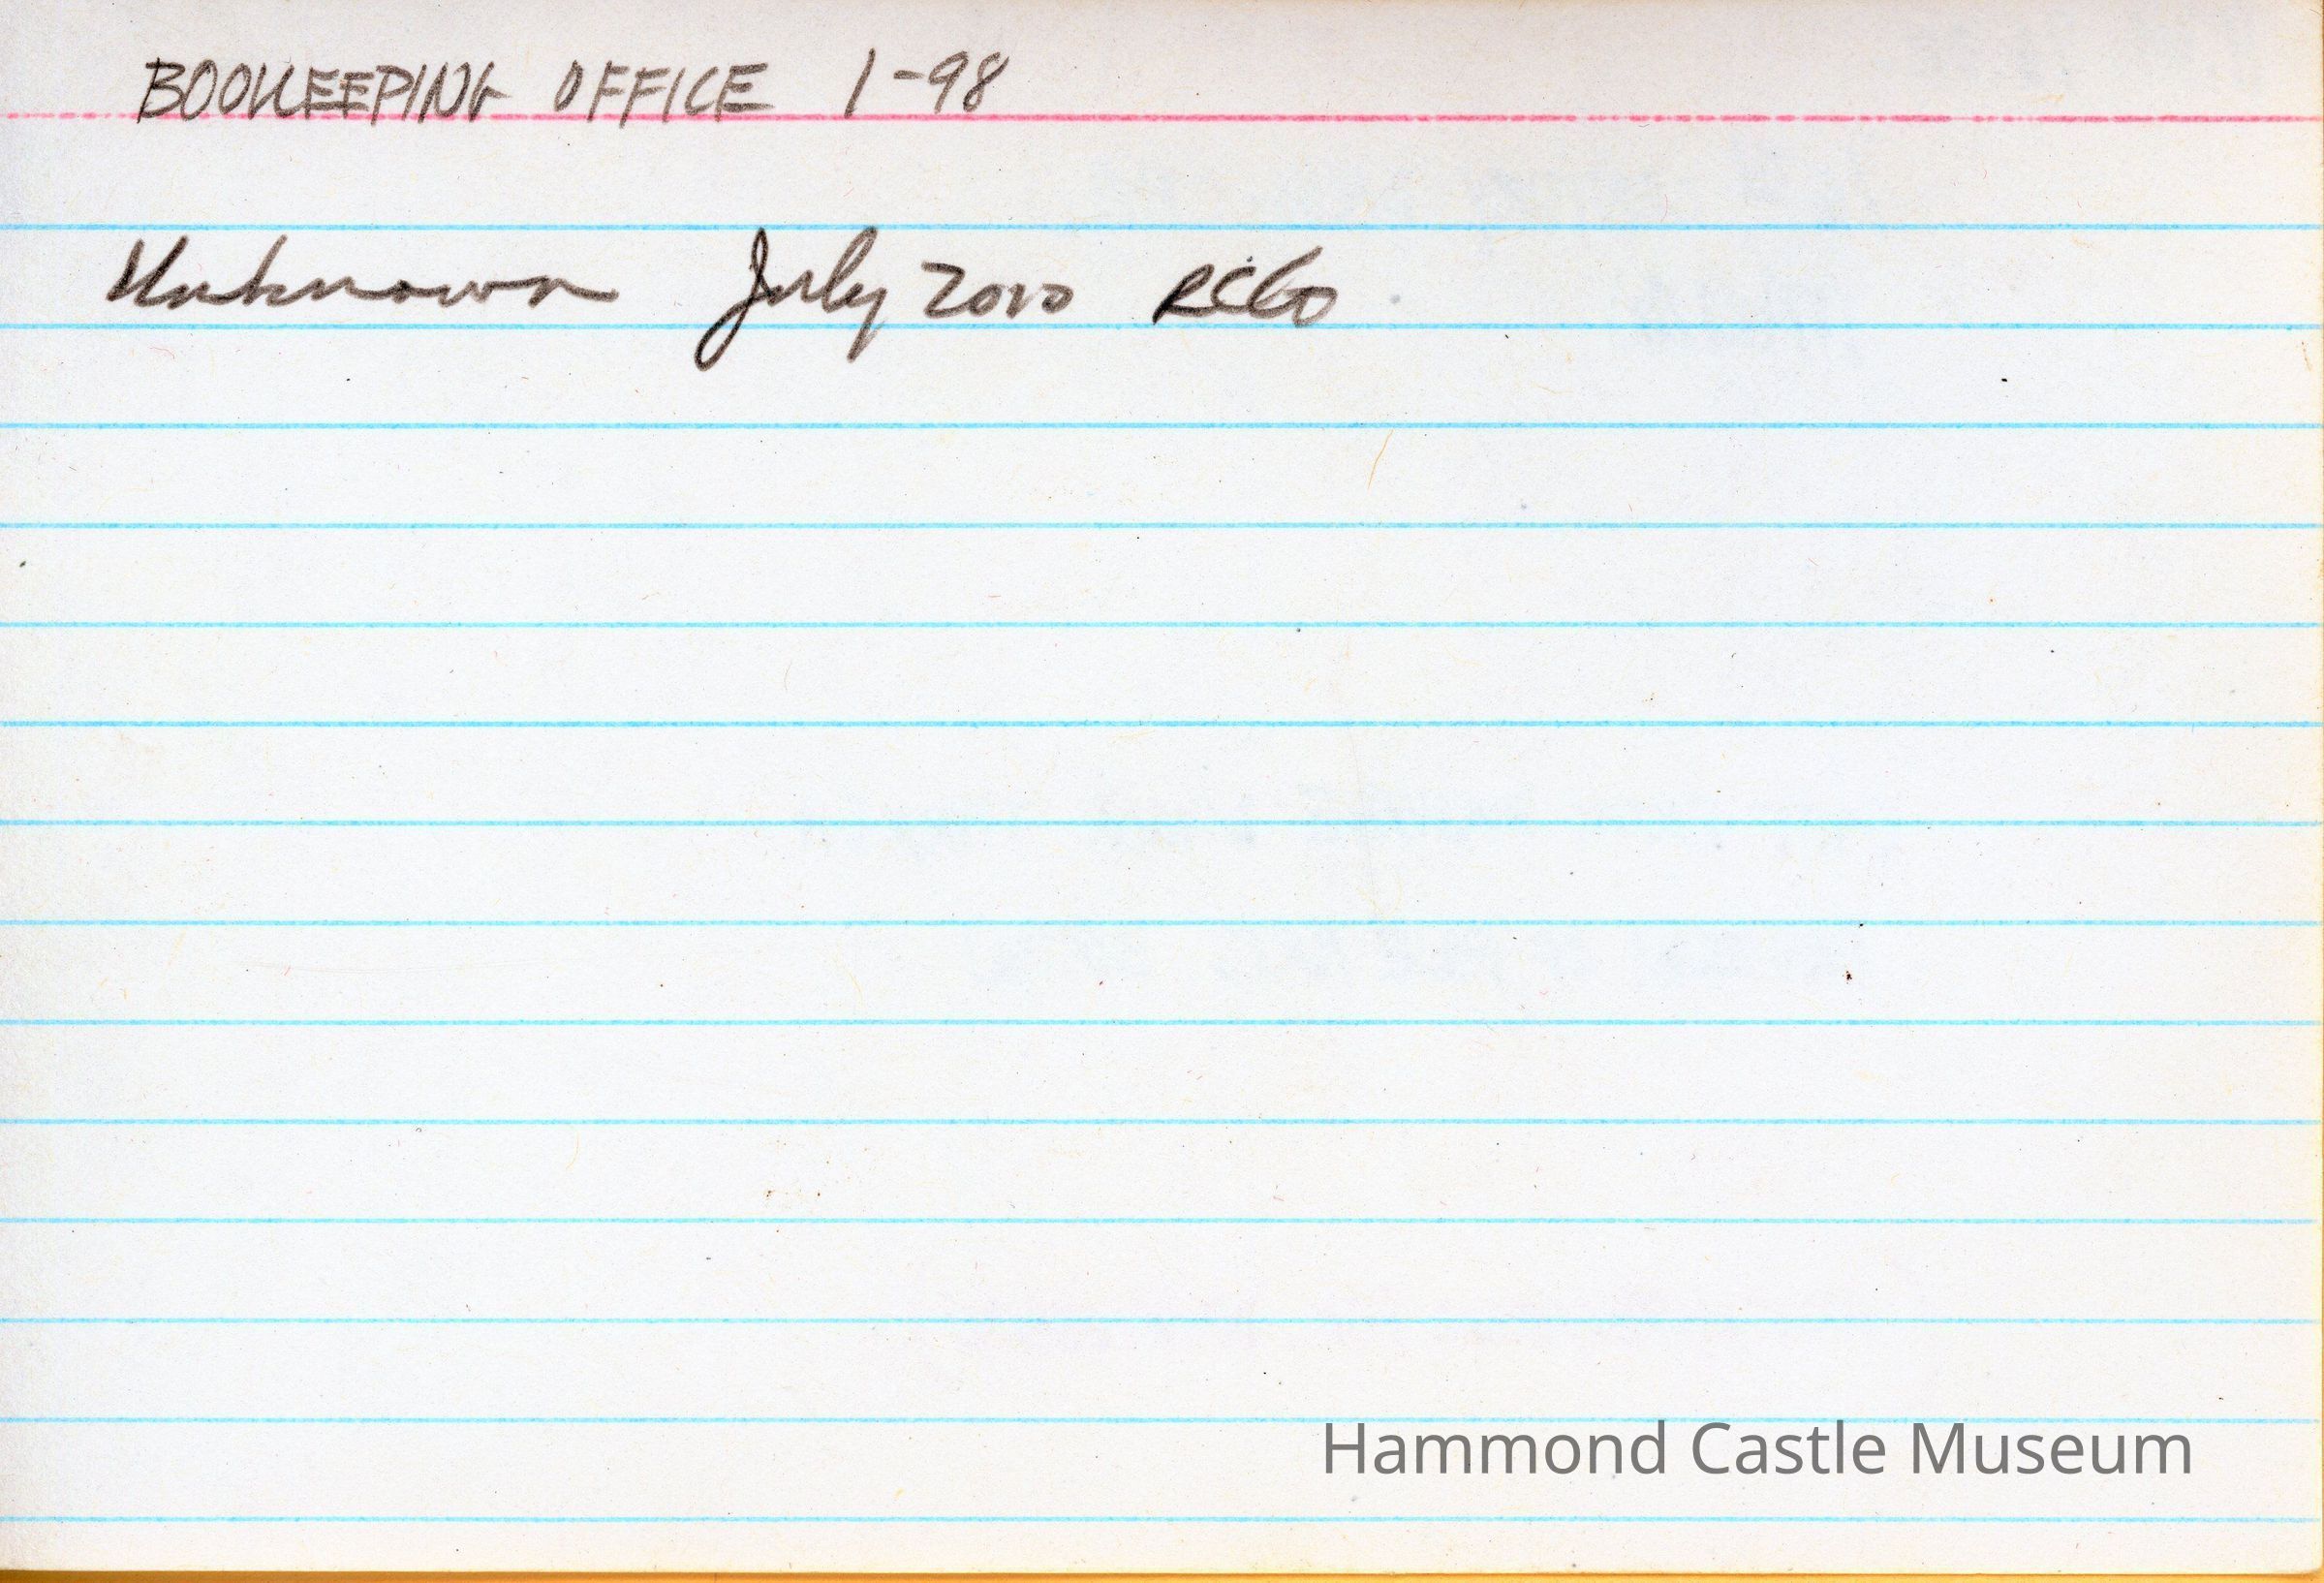 BOOKEEPING OFFICE 1-98
Unknown July 2010
Hammond Castle Museum